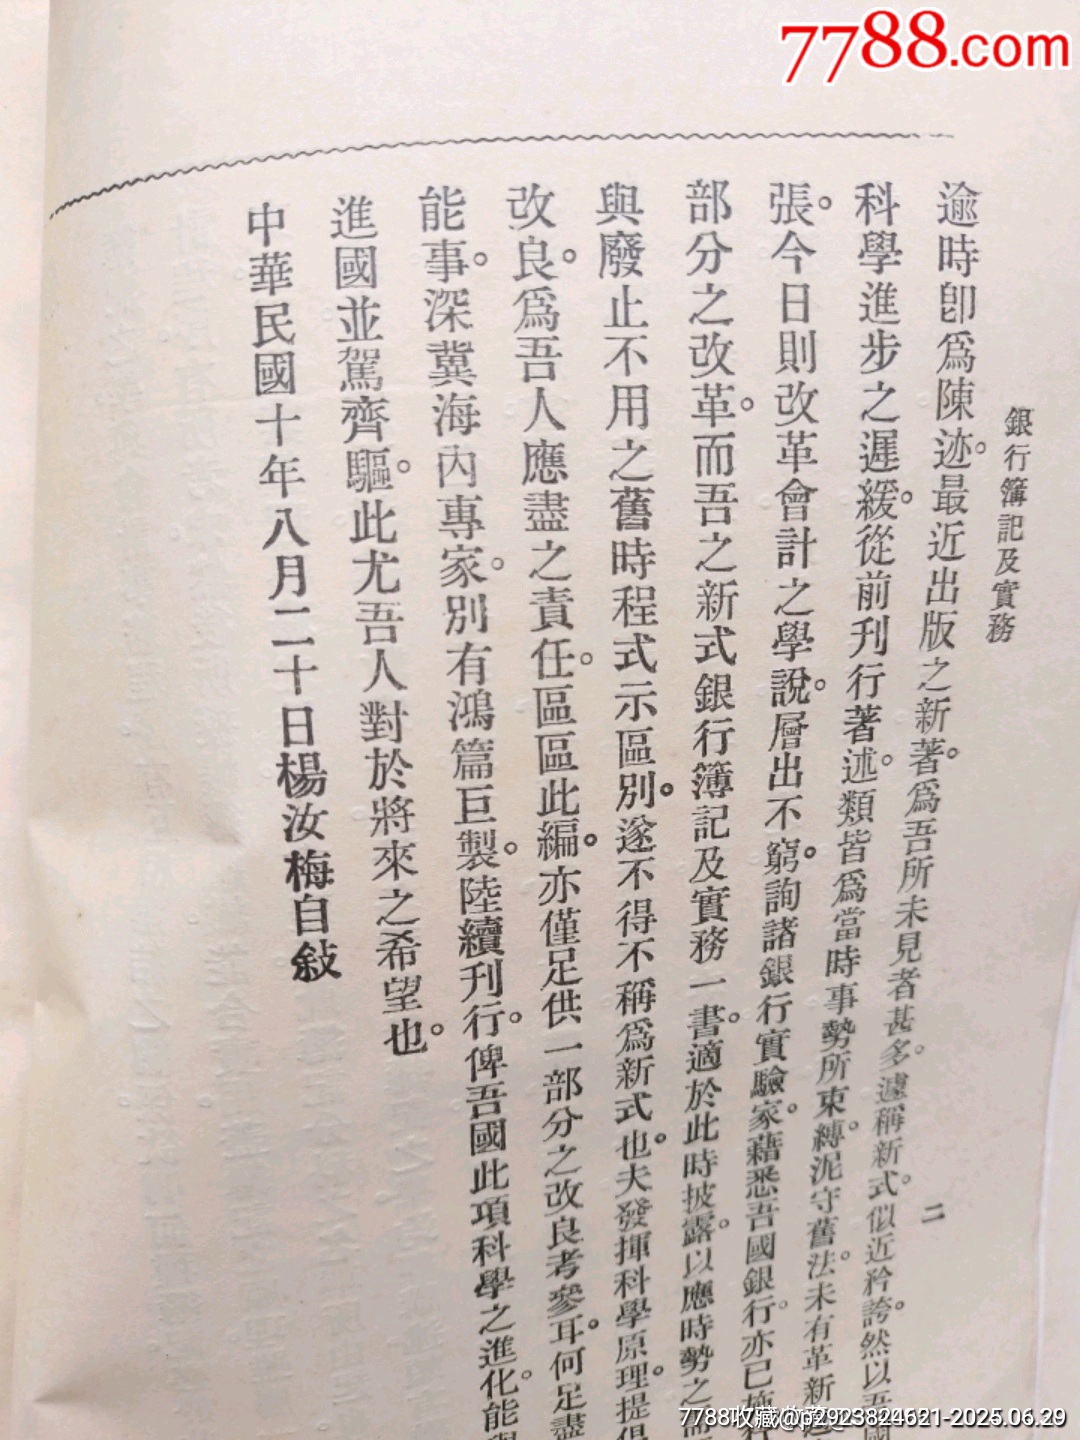 7788.com
銀行簿記及實務
二
逾時卽爲陳迹。最近出版之新著。爲吾所未見者甚多。遽稱新式。似近矜誇。然以吾國
科學進步之遲緩。從前刊行著述。類皆爲當時事勢所束縛。泥守舊法。未有革新
張。今日則改革會計之學說。層出不窮。詢諸銀行實驗家。藉悉吾國銀行。亦已
部分之改革。而吾之新式銀行簿記及實務一書。適於此時披露。以應時勢之
與廢止不用之舊時程式示區別。遂不得不稱爲新式也。夫發揮科學原理。提倡
改良。爲吾人應盡之責任。區區此編。亦僅足供一部分之改良考參耳。何足盡
能事。深冀海內專家。別有鴻篇巨製。陸續刊行。俾吾國此項科學之進化。能與
進國並駕齊驅。此尤吾人對於將來之希望也。
中華民國十年八月二十日楊汝梅自敍
7788收藏@p2923824621-2025.06.29